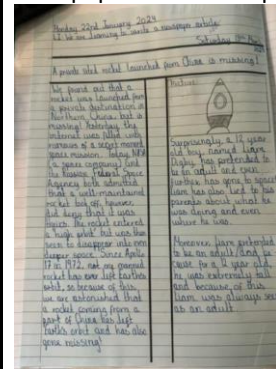 Monday 22nd January 2024
L.I: We are learning to write a newspaper article.
Saturday
A private sited rocket launched from China is missing!
We found out that a
rocket was launched from
a private destination in
Northern China, but is
missing! Yesterday, the
internet was filled with
rumours of a secret manned
space mission. Today,
(a space company) and
the Russian Federal Space
Agency both admitted
that a well-maintained
rocket took off, however,
did deny that it was
theirs. The rocket entered
a high orbit but was then
seen to disappear into
deeper space. Since April
17 in 1972, not any manned
rocket has ever left Earth's
orbit, so because of this,
we are astonished that
a rocket coming from a
part of China has left
Earth's orbit and has also
gone missing!
Picture
Surprisingly, a 12 year
old boy, named Liam
Digby, has pretended to
be an adult and even
further has gone to space!
Liam has also lied to his
parents about what he
was doing and even
where he was.
Moreover, Liam pretended
to be an adult, and
cause for a year old,
he was extremely tall
and because of this
Liam was always seen
as an adult.